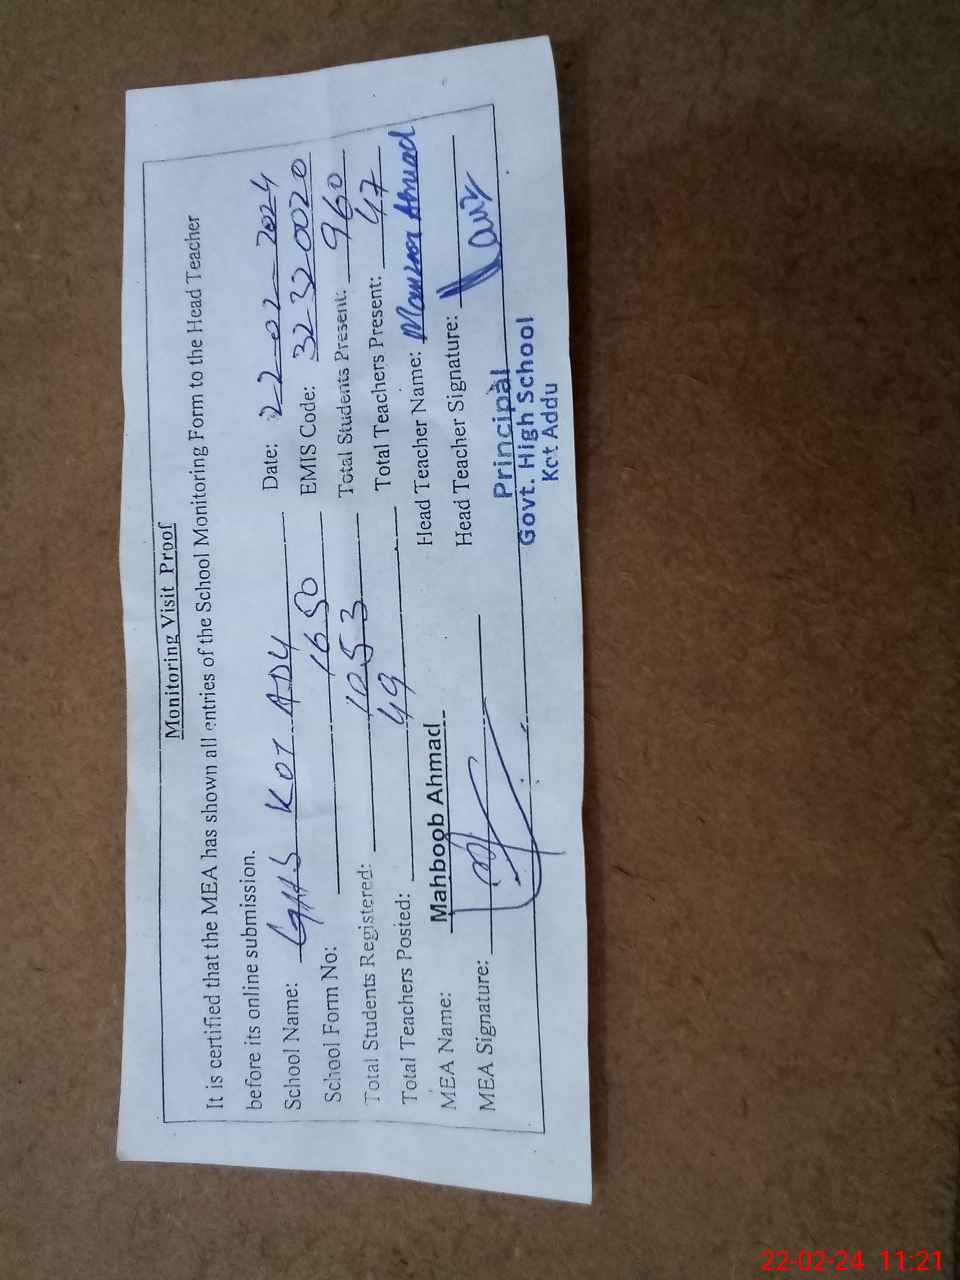 Monitoring Visit Proof
It is certified that the MEA has shown all entries of the School Monitoring Form to the Head Teacher
before its online submission.
School Name: GHS KOT ADU Date: 22-02-2024
School Form No: 1650 EMIS Code: 32320020
Total Students Registered: 1053 Total Students Present: 960
Total Teachers Posted: 49 Total Teachers Present: 47
MEA Name: Mahboob Ahmad Head Teacher Name: Manzoor Ahmad
MEA Signature: Head Teacher Signature:
Principal
Govt. High School
Kot Addu
22-02-24 11:21